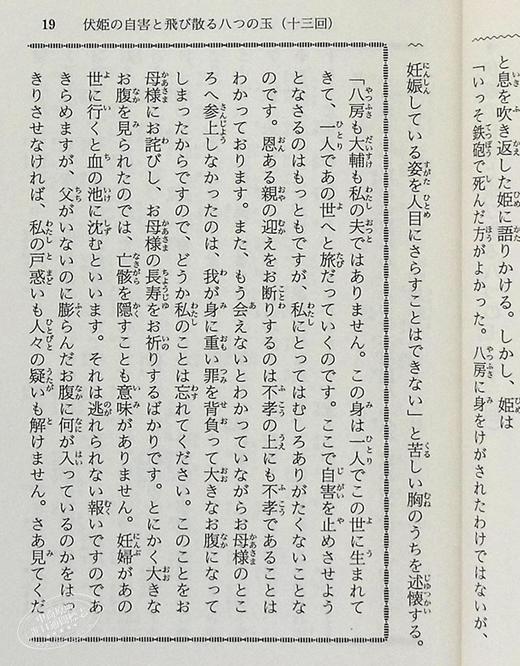 19　伏姫の自害と飛び散る八つの玉（十三回）
と息を吹き返した姫に語りかける。しかし、姫は
「いっそ鉄砲で死んだ方がよかった。八房に身をけがされたわけではないが、
妊娠している姿を人目にさらすことはできない」と苦しい胸のうちを述懐する。
「八房も大輔も私の夫ではありません。この身は一人でこの世に生まれて
きて、一人であの世へと旅だっていくのです。ここで自害を止めさせよう
となさるのはもっともですが、私にとってはむしろありがたくないことな
のです。恩ある親の迎えをお断りするのは不孝の上にも不孝であることは
わかっております。また、もう会えないとわかっていながらお母様のとこ
ろへ参上しなかったのは、我が身に重い罪を背負って大きなお腹になって
しまったからですので、どうか私のことは忘れてください。このことをお
母様にお詫びし、お母様の長寿をお祈りするばかりです。とにかく大きな
お腹を見られたのでは、亡骸を隠すことも意味がありません。妊婦があの
世に行くと血の池に沈むといいます。それは逃れられない報いですのであ
きらめますが、父がいないのに膨らんだお腹に何が入っているのかをはっ
きりさせなければ、私の戸惑いも人々の疑いも解けません。さあ見てくだ